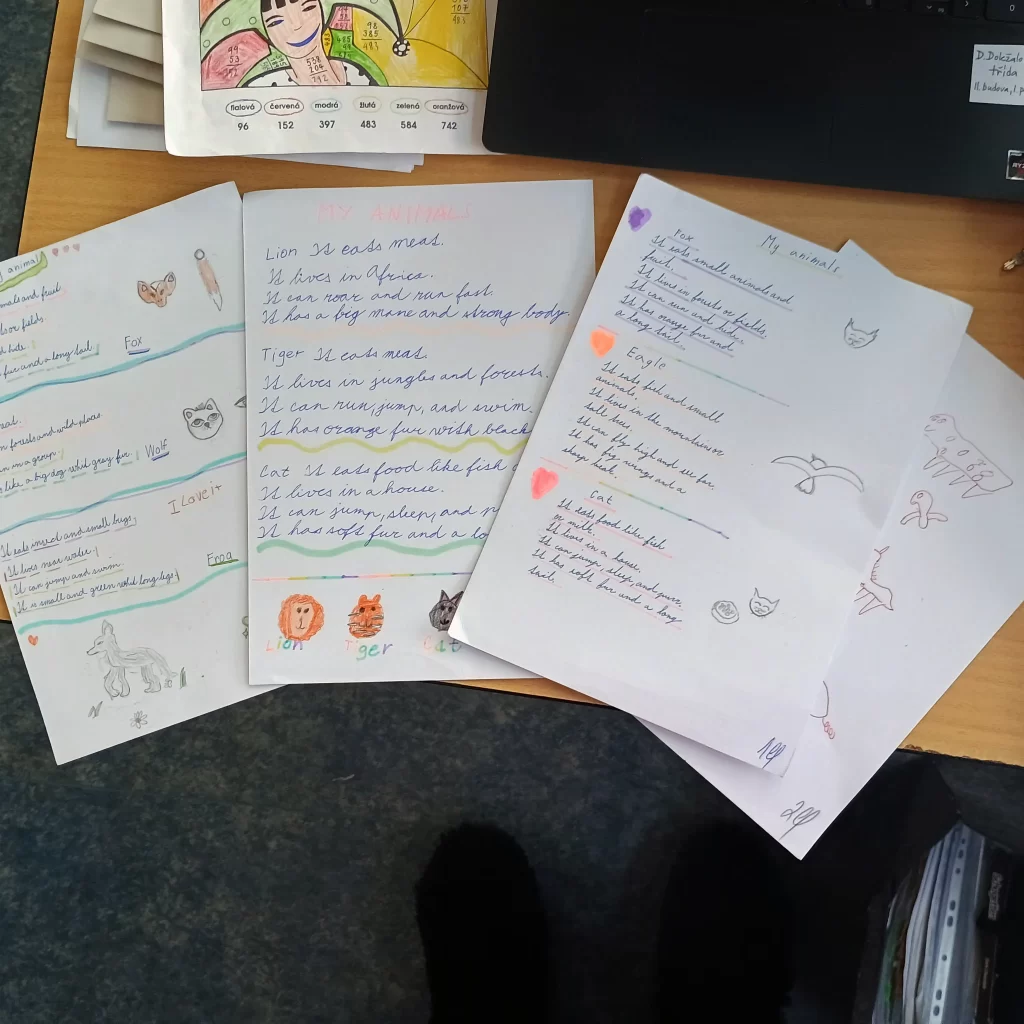 99
53
152
538
204
742
98
385
483
107
483
fialová červená modrá žlutá zelená oranžová
96 152 397 483 584 742
třída
II. budova, 1. p
animal
mals and fruit
ds or fields.
d hide.
fur and a long tail
Fox
forests and wild places.
in a group.
like a big dog whit gray fur.
Wolf
I Love it
It eats insect and small bugs
It lives near water.
It can jump and swim.
It is small and green whit long legs
Frog
MY ANIMALS
Lion It eats meat.
It lives in Africa.
It can roar and run fast.
It has a big mane and strong body.
Tiger It eats meat.
It lives in jungles and forests.
It can run, jump, and swim.
It has orange fur with black
Cat It eats food like fish
It lives in a house.
It can jump, sleep, and
It has soft fur and a lo
Lion Tiger Cat
My animals
Fox
It eats small animals and
fruit.
It lives in forests or fields.
It can run and hide.
It has orange fur and
a long tail.
Eagle
It eats fish and small
animals.
It lives in the mountains or
tall trees.
It can fly high and see far.
It has big wings and a
sharp beak.
Cat
It eats food like fish
or milk.
It lives in a house.
It can jump, sleep, and purr.
It has soft fur and a long
tail.